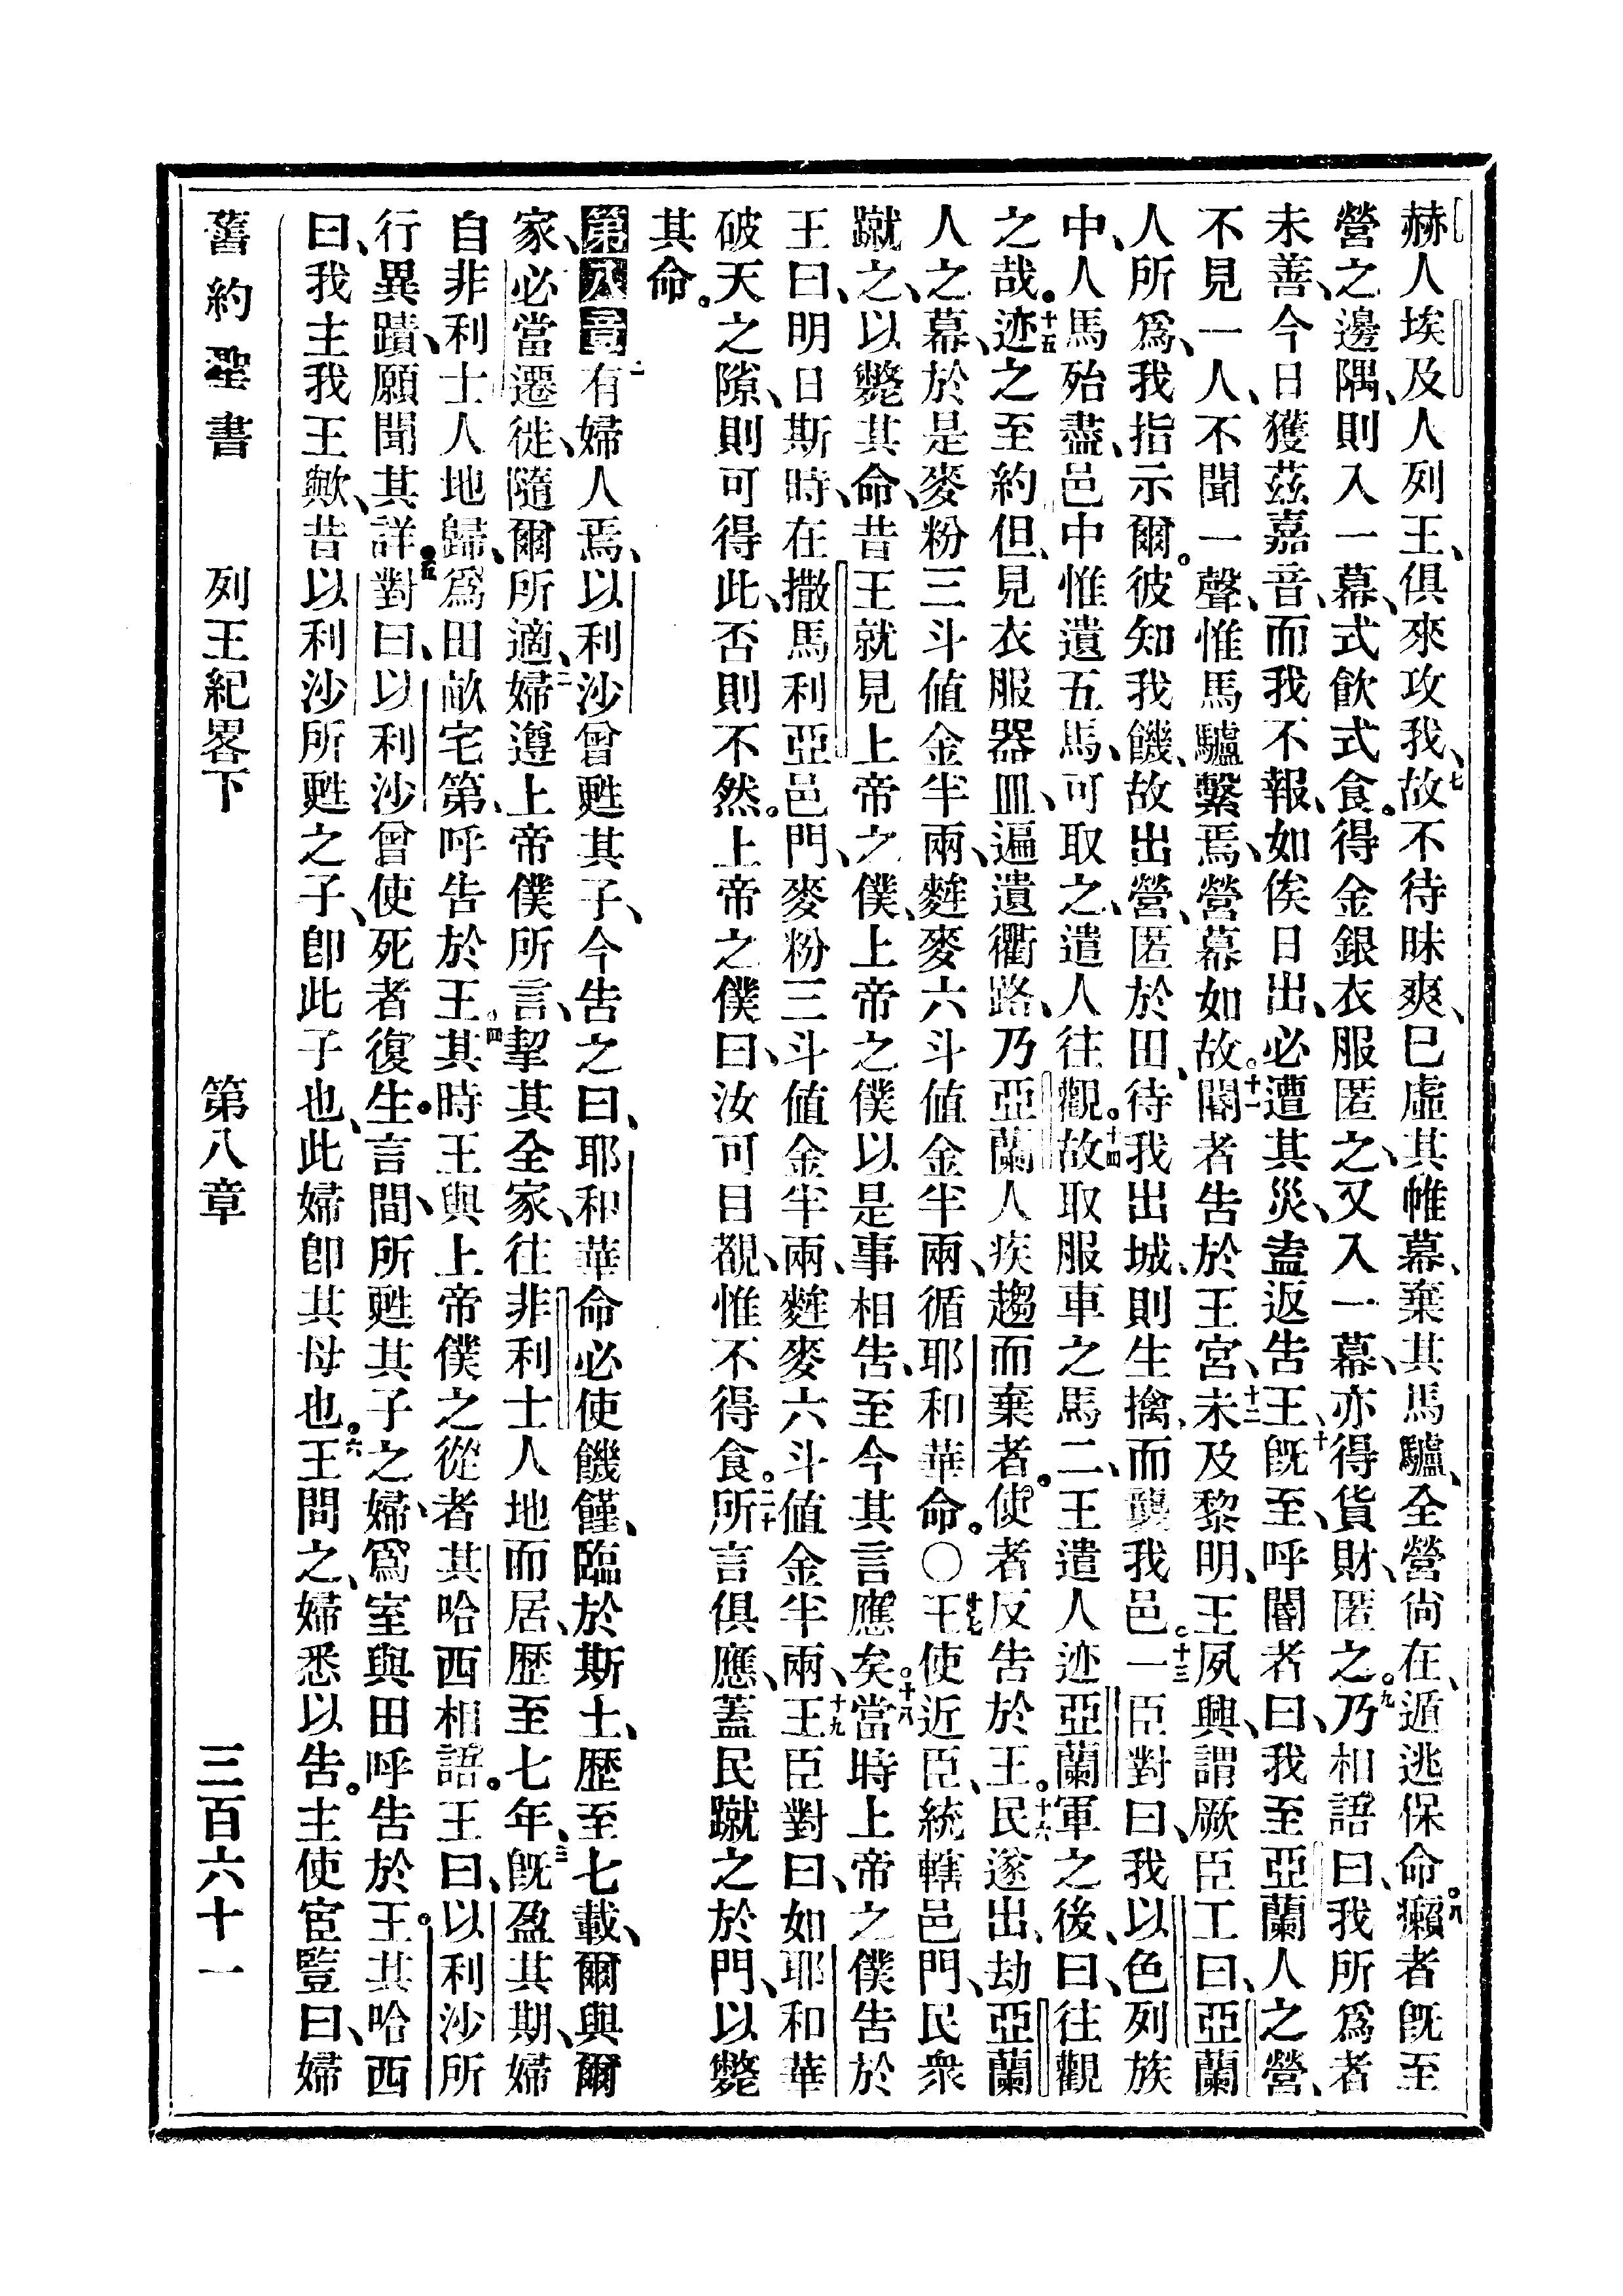 赫人埃及人列王、俱來攻我、七故不待昧爽、已虛其帷幕、棄其馬驢、全營尚在、遁逃保命。八癩者旣至
營之邊隅、則入一幕、式飮式食。得金銀衣服匿之、又入一幕、亦得貨財、匿之。九乃相語曰、我所爲者
未善、今日獲茲嘉音、而我不報、如俟日出、必遭其災、盍返告王、十旣至、呼閽者曰、我至亞蘭人之營、
不見一人、不聞一聲、惟馬驢繫焉、營幕如故。十一閽者告於王宮、十二未及黎明、王夙興、謂厥臣工曰、亞蘭
人所爲、我指示爾。彼知我饑、故出營、匿於田、待我出城、則生擒、而襲我邑。十三一臣對曰、我以色列族
中、人馬殆盡、邑中惟遺五馬、可取之、遣人往觀。十四故取服車之馬二、王遣人迹亞蘭軍之後、曰、往觀
之哉。十五迹之至約但、見衣服器皿、遍遺衢路、乃亞蘭人疾趨而棄者。使者反告於王。十六民遂出、劫亞蘭
人之幕、於是麥粉三斗值金半兩、麰麥六斗值金半兩、循耶和華命。〇十七王使近臣、統轄邑門、民衆
蹴之、以斃其命、昔王就見上帝之僕、上帝之僕以是事相告、至今其言應矣。十八當時上帝之僕告於
王曰、明日斯時、在撒馬利亞邑門、麥粉三斗値金半兩、麰麥六斗値金半兩、十九王臣對曰、如耶和華
破天之隙、則可得此、否則不然。上帝之僕曰、汝可目覩、惟不得食。二十所言俱應、蓋民蹴之於門、以斃
其命。
第八章一有婦人焉、以利沙曾甦其子、今告之曰、耶和華命必使饑饉、臨於斯土、歷至七載、爾與爾
家、必當遷徙、隨爾所適、二婦遵上帝僕所言、挈其全家、往非利士人地而居、歷至七年、三旣盈其期、婦
自非利士人地歸、爲田畝宅第、呼告於王。四其時王與上帝僕之從者其哈西相語。王曰、以利沙所
行異蹟、願聞其詳。五對曰、以利沙曾使死者復生。言間、所甦其子之婦、爲室與田呼告於王。其哈西
曰、我主我王歟、昔以利沙所甦之子、卽此子也、此婦卽其母也。六王問之、婦悉以告。主使宦豎曰、婦
舊約聖書　列王紀畧下　第八章　三百六十一